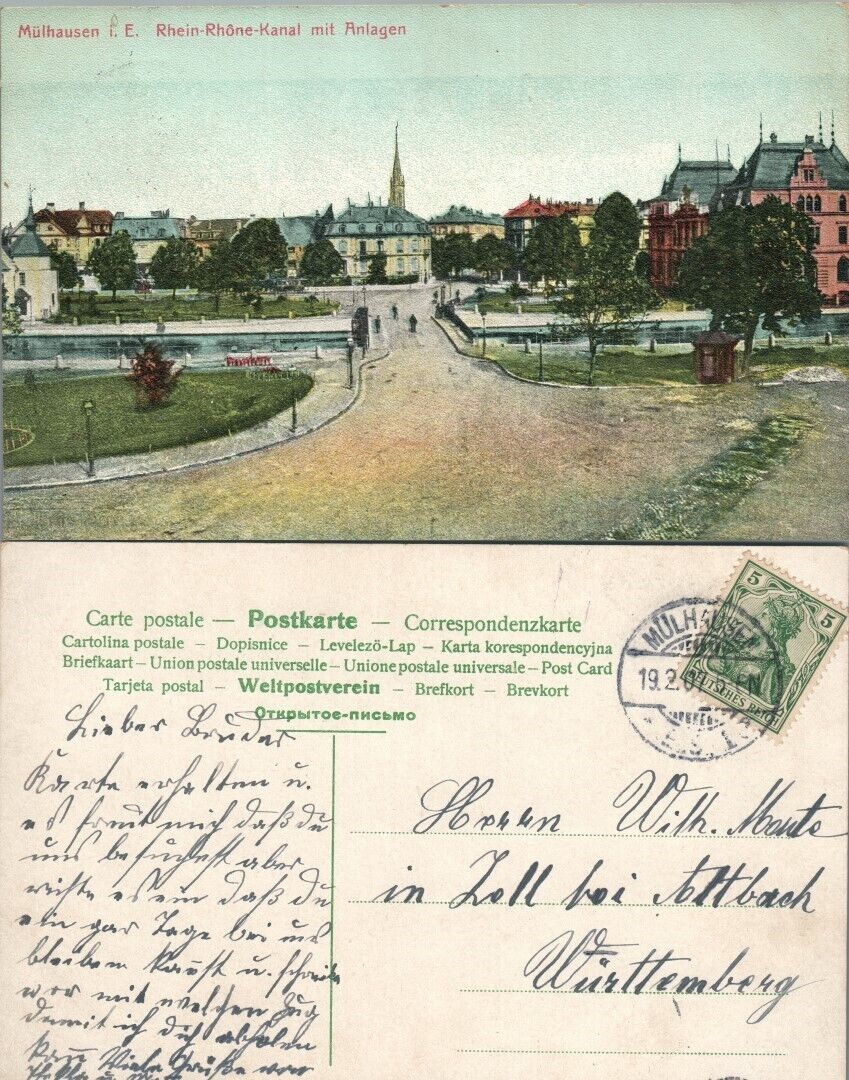 Mülhausen i. E. Rhein-Rhône-Kanal mit Anlagen
Carte postale — Postkarte — Correspondenzkarte
Cartolina postale – Dopisnice – Levelező-Lap – Karta korespondencyjna
Briefkaart – Union postale universelle – Unione postale universale – Post Card
Tarjeta postal – Weltpostverein – Brefkort – Brevkort
Открытое-письмо
5 5
DEUTSCHES REICH
MÜLHAUSEN
19.2.0
Lieber Bruder
Karte erhalten u.
es freut mich daß du
uns besuchest aber
richte es ein daß du
ein par Tage bei uns
bleiben kanst u. schreibe
vor mit welchen Zug
damit ich dich abholen
kan Viele Grüße von
Herrn Wilh.
in Zell bei Altbach
Württemberg